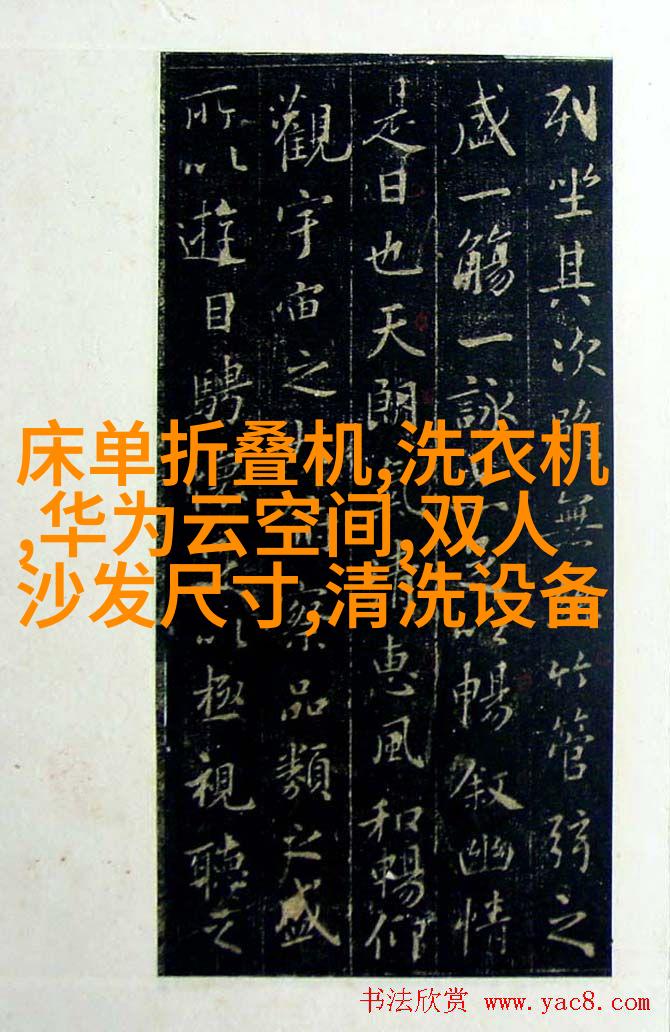 列坐其次雖無竹管弦之
盛一觴一詠暢叙幽情
是日也天朗氣惠風和暢仰
觀宇宙之察品類之盛
所以遊目騁以極視聽之
床单折叠机,洗衣机
,华为云空间,双人
沙发尺寸,清洗设备
书法欣赏 www.yac8.com